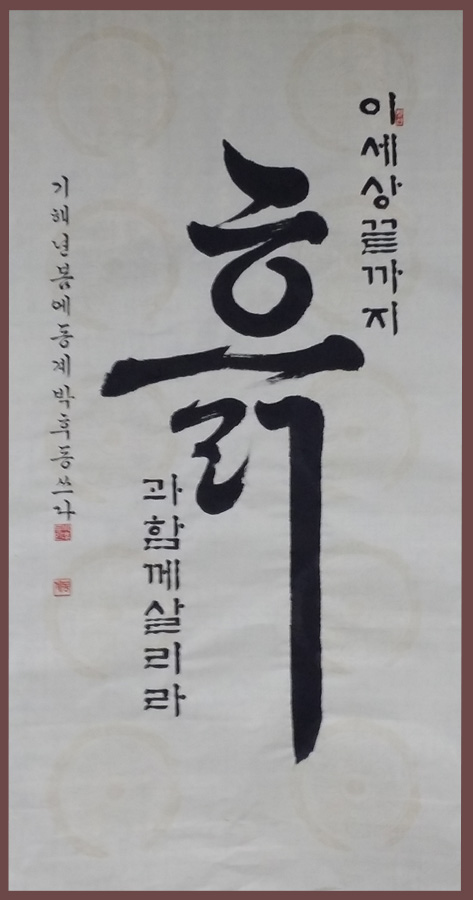 이세상끝까지
흙
과함께살리라
기해년봄에동계박후동쓰다